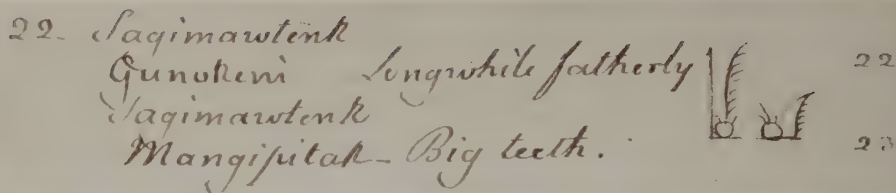 22. Sagimawtenk
Gunokeni Longwhile fatherly 22
Sagimawtenk
Mangipitak - Big teeth. 23